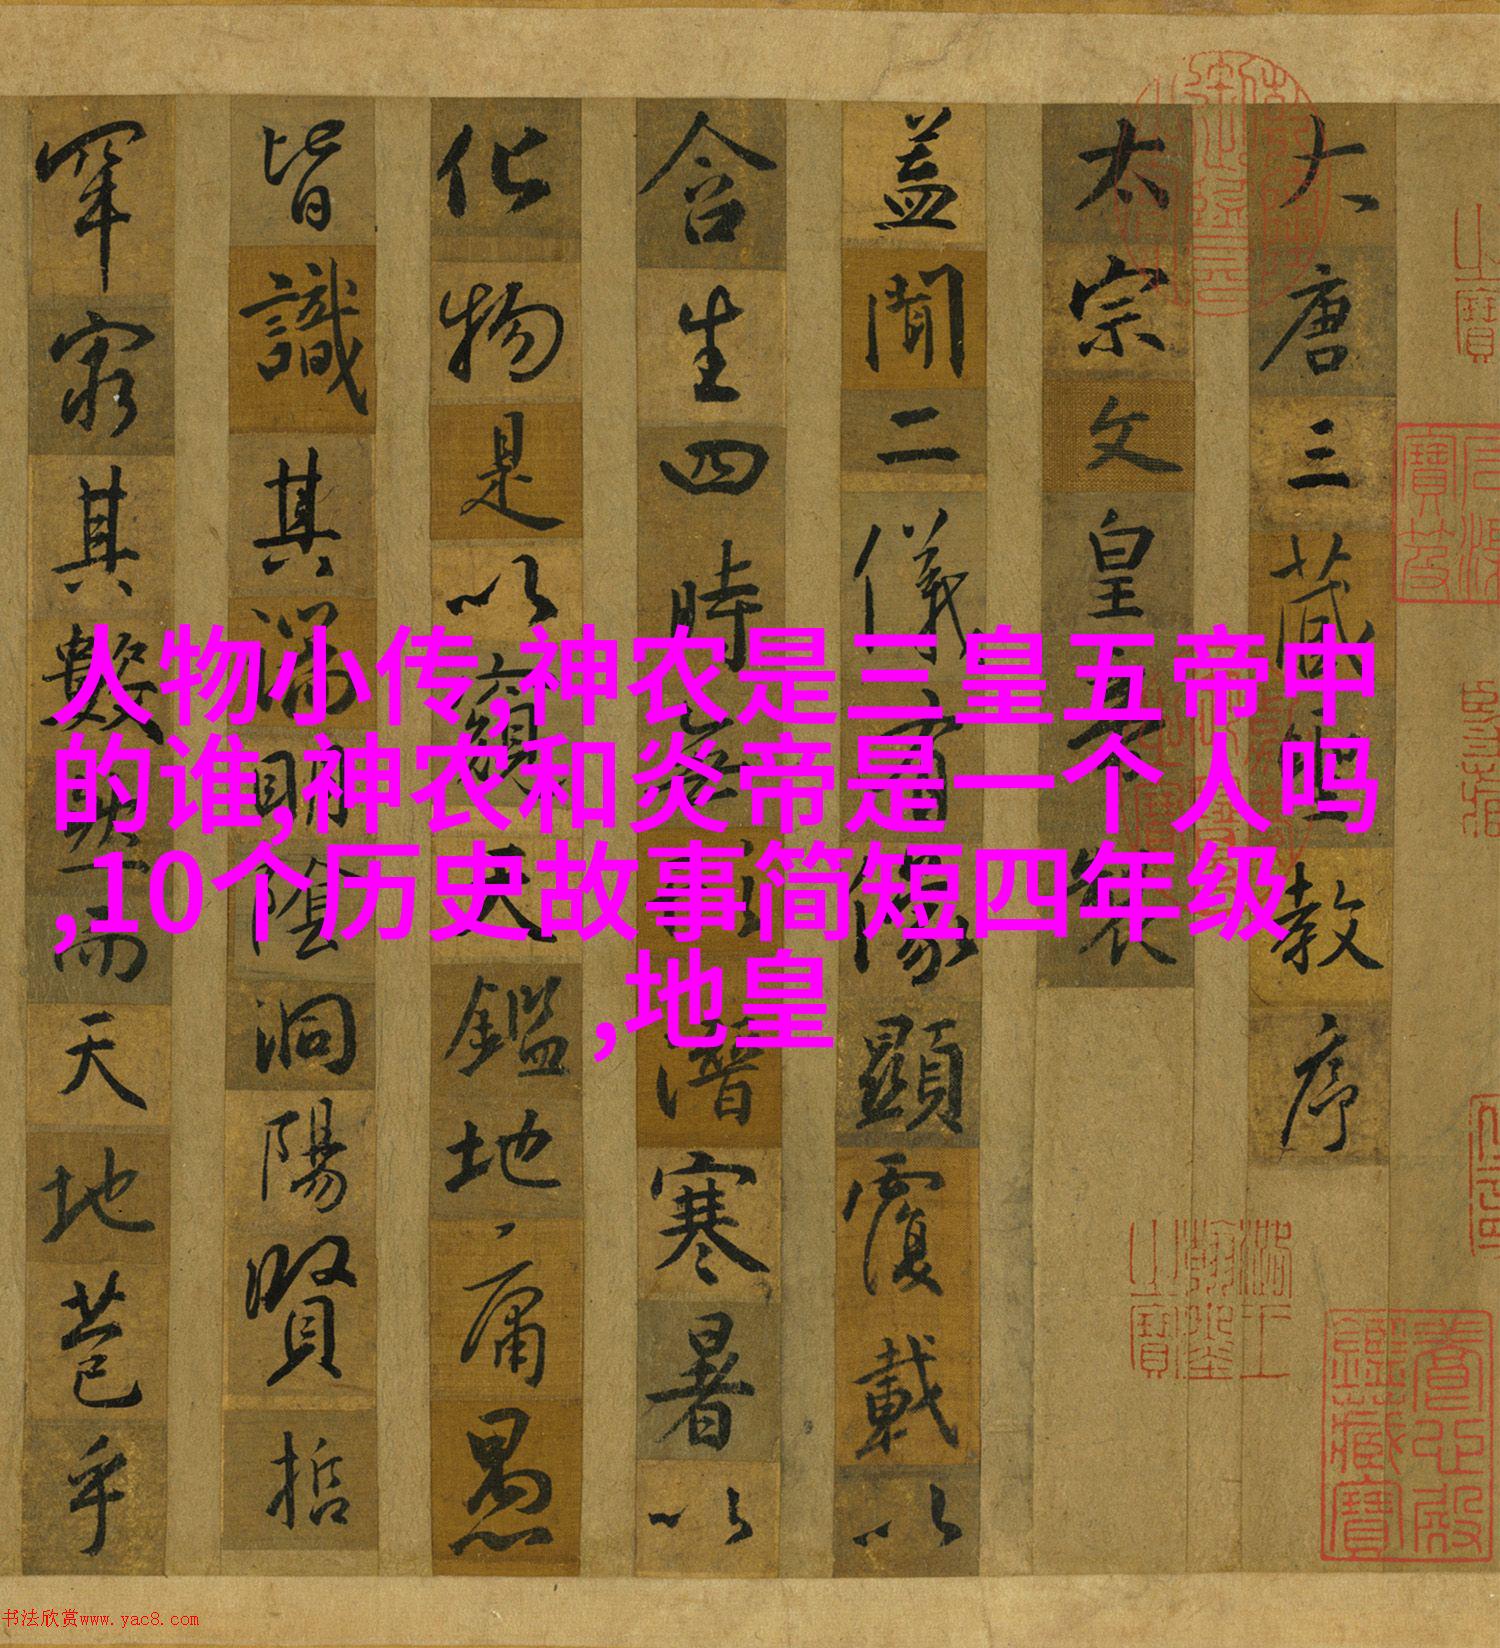 大唐三藏聖教序
太宗文皇帝製
蓋聞二儀有像顯覆載以
含生四時無形潛寒暑以
化物是以窺天鑑地庸愚
皆識其端明陰洞陽賢哲
罕窮其數然而天地苞乎
人物小传,神农是三皇五帝中
的谁,神农和炎帝是一个人吗
,10个历史故事简短四年级
,地皇
养心殿鑑藏寶
书法欣赏www.yac8.com